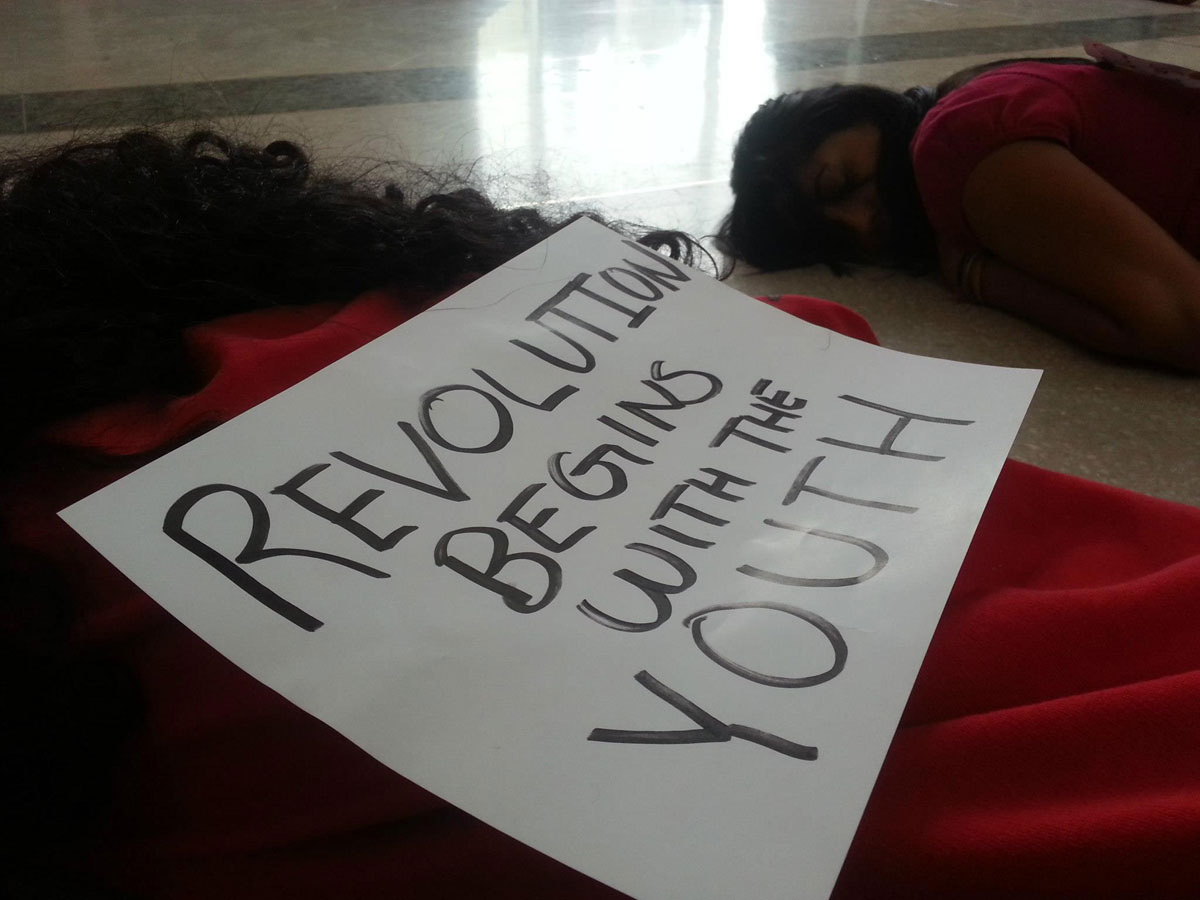 REVOLUTION
BEGINS
WITH THE
YOUTH